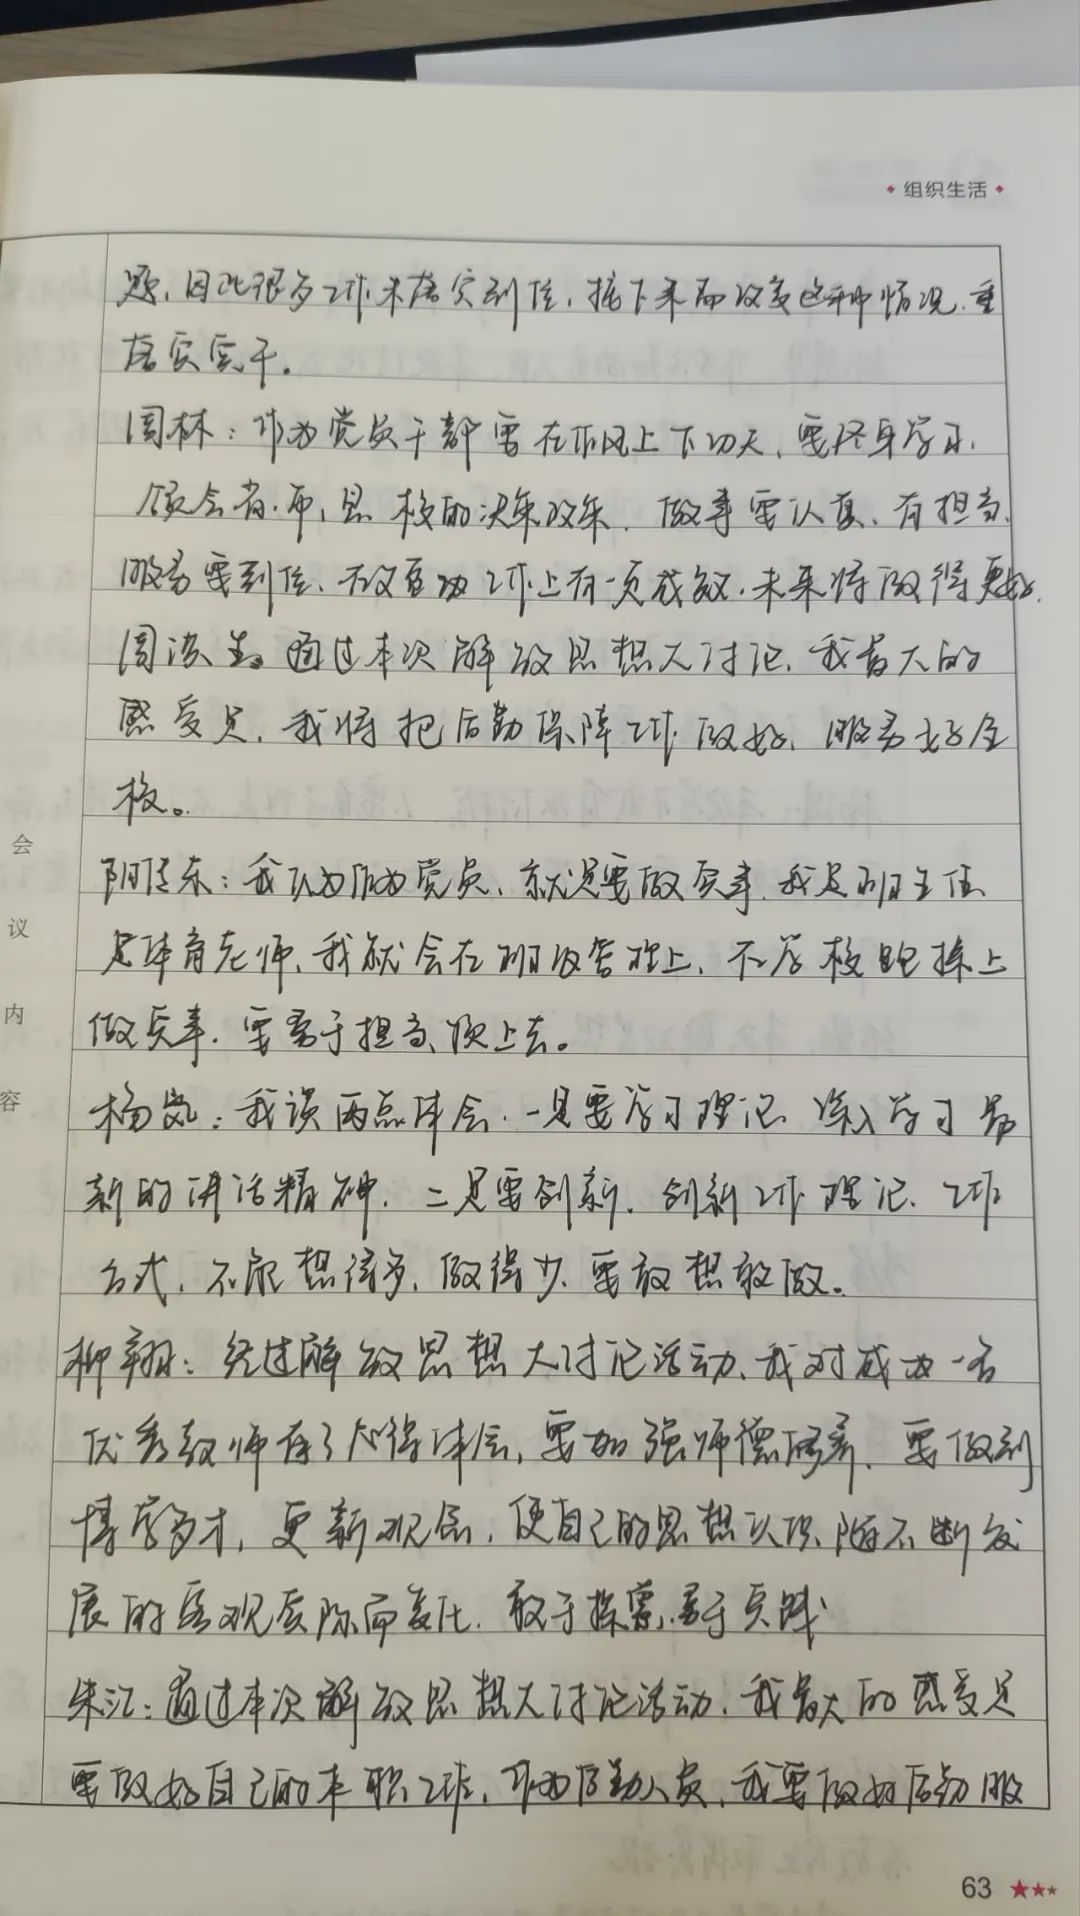 组织生活
题,因此很多工作未落实到位,接下来而改变这种情况.重
落实实干。
周林:作为党员干部要在作风上下功夫,要终身学习,
领会省.市,县校的决策政策.做事要认真、有担当,
服务要到位、在教育工作上有一定成效.未来将做得更好.
周洪生。通过本次解放思想大讨论,我最大的
感受是,我将把后勤保障工作做好,服务好全
校。
阴传东:我认为作为党员、就是要做实事.我是班主任
是体育老师,我就会在班级管理上,在学校跑操上
做实事.要勇于担当、顶上去。
杨岚:我谈两点体会.一是要学习理论 深入学习最
新的讲话精神.二是要创新.创新工作理论、工作
方式,不能想得多,做得少.要敢想敢做。
柳翔:经过解放思想大讨论活动、我对成为一名
优秀教师有了心得体会,要加强师德修养、要做到
博学多才,更新观念,使自己的思想认识随不断发
展的客观实际而变化.敢于探索,勇于实践
朱江:通过本次解放思想大讨论活动.我最大的感受是
要做好自己的本职工作,作为后勤人员,我要做好后勤服
会
议
内
容
63